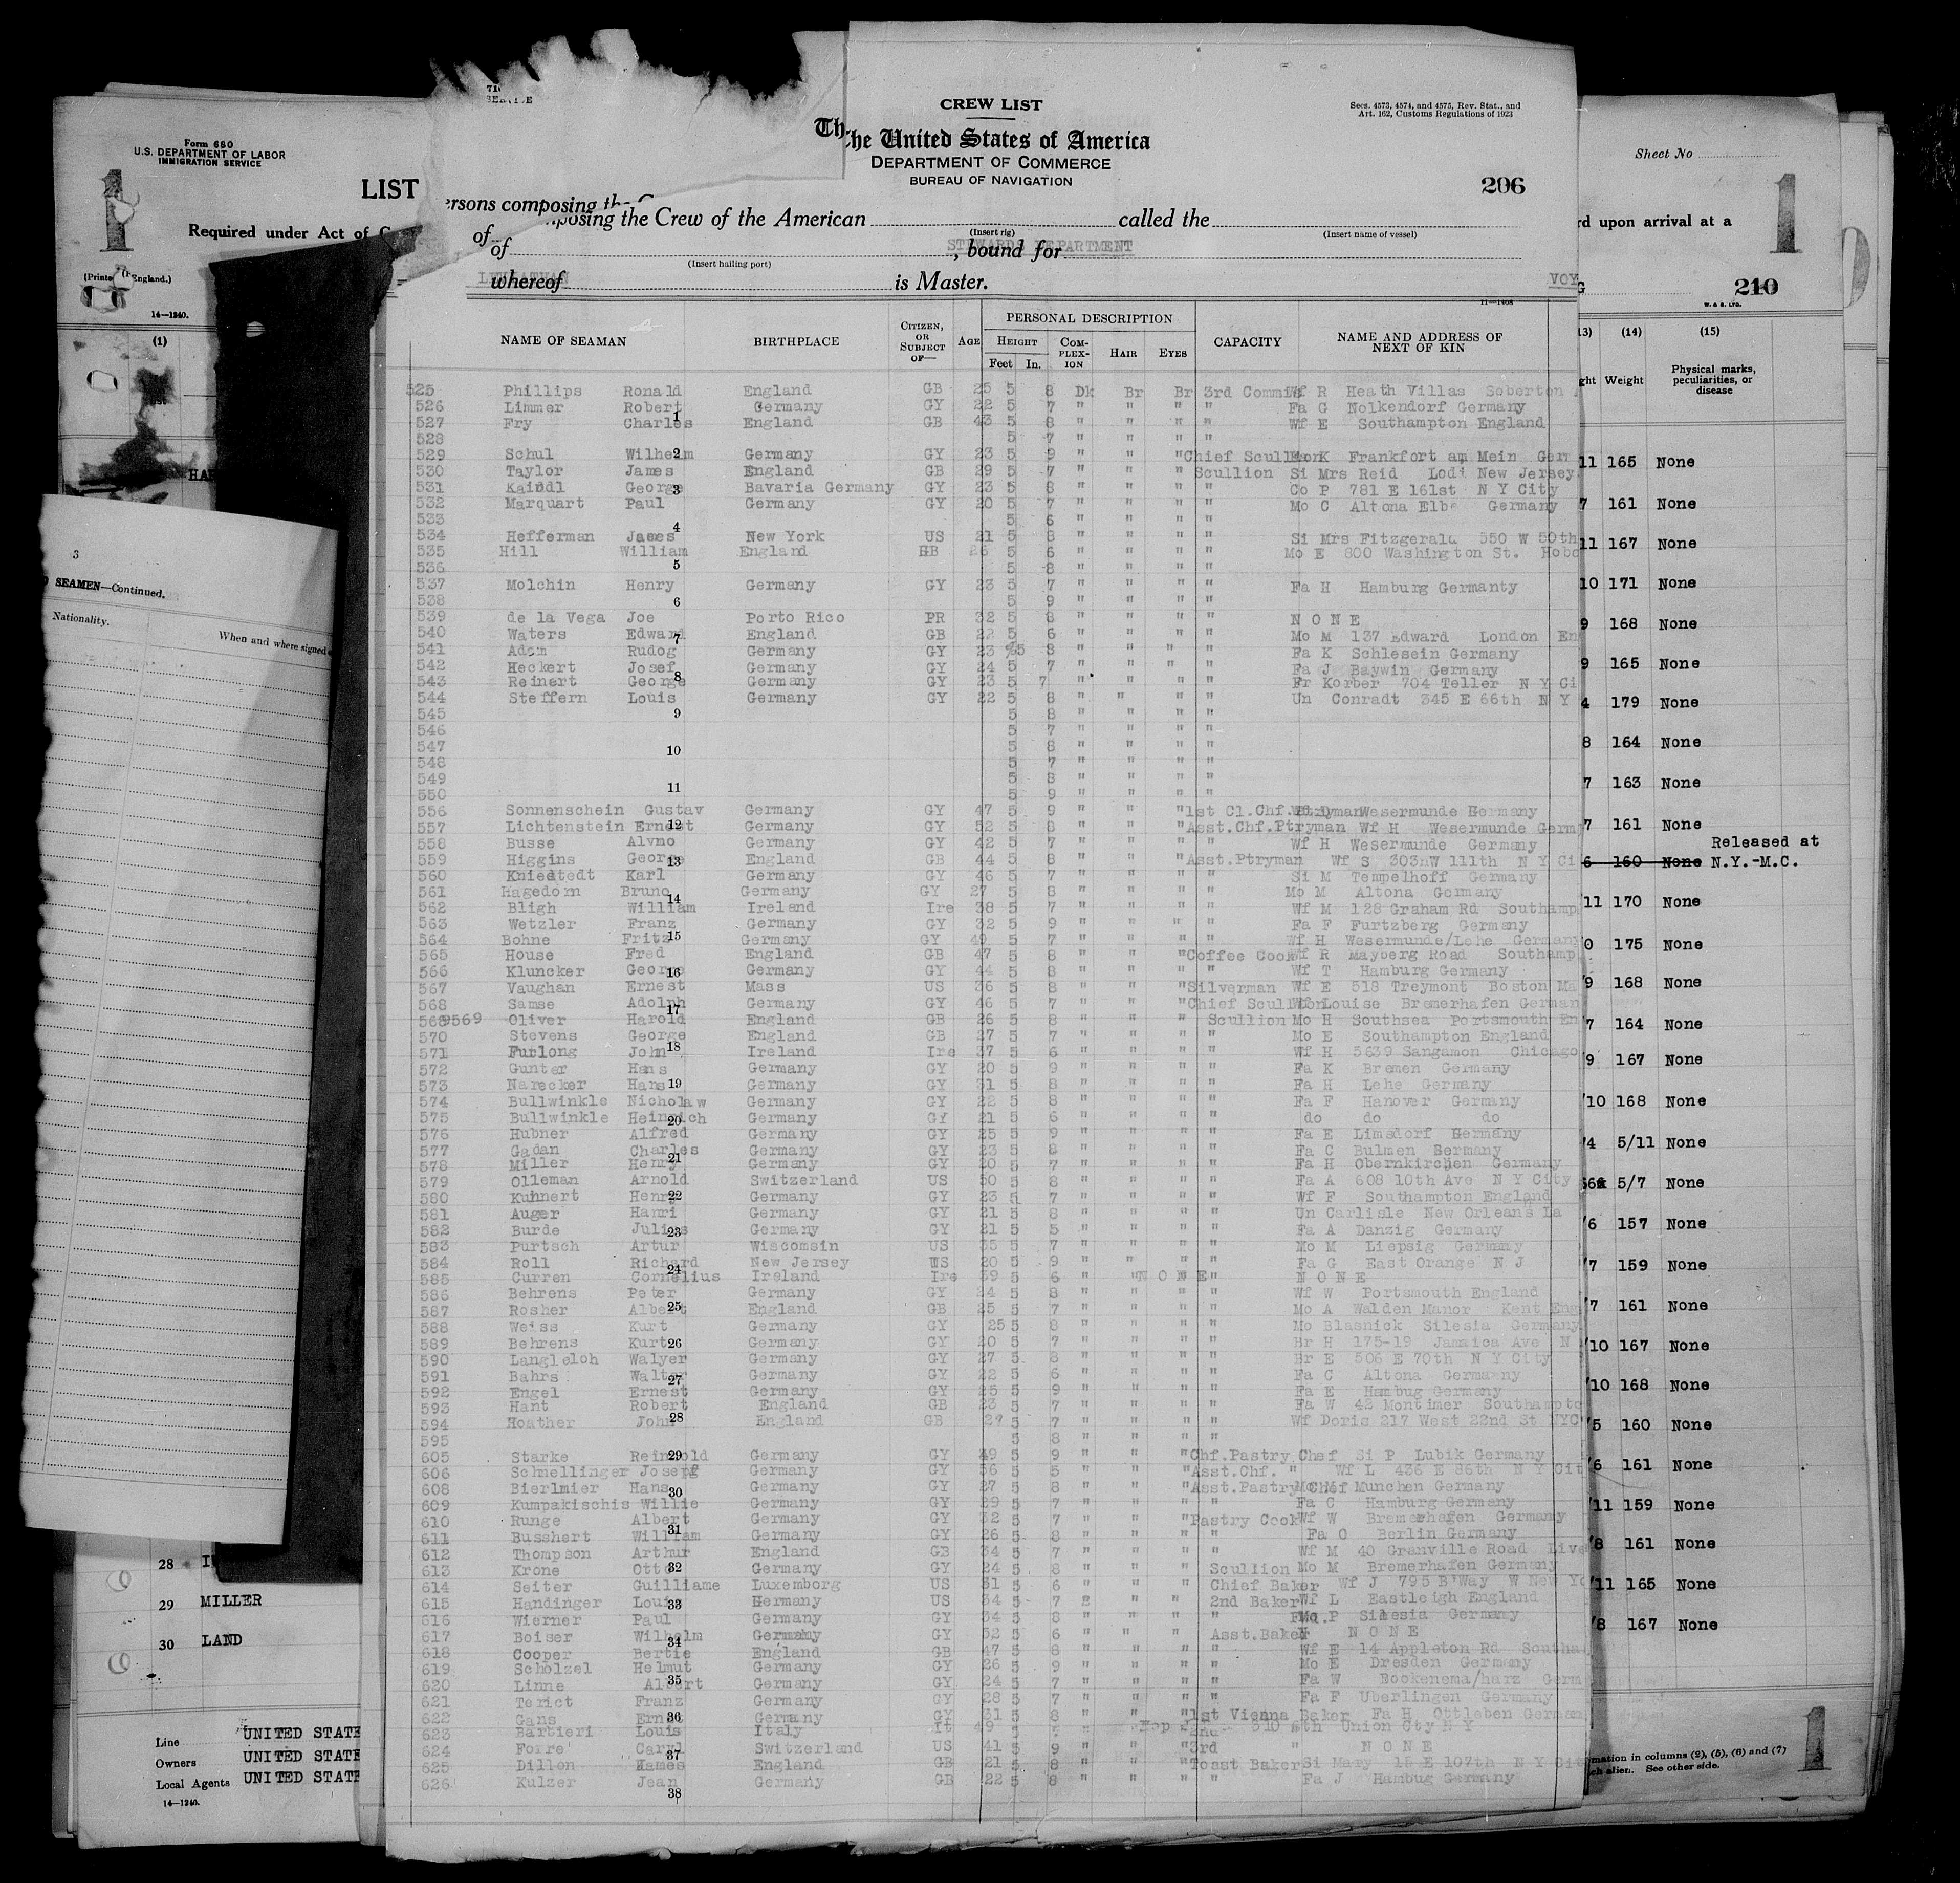 CREW LIST
Secs. 4573, 4574, and 4575, Rev. Stat., and
Art. 162, Customs Regulations of 1923
The United States of America
DEPARTMENT OF COMMERCE
BUREAU OF NAVIGATION
206
composing the Crew of the American called the
(Insert rig) (Insert name of vessel)
STEWARDS DEPARTMENT
of , bound for
(Insert hailing port)
LEVIATHAN VOY
whereof is Master.
11—1408
NAME OF SEAMAN BIRTHPLACE CITIZEN, OR SUBJECT OF— AGE PERSONAL DESCRIPTION CAPACITY NAME AND ADDRESS OF NEXT OF KIN
HEIGHT Feet In. COMPLEXION HAIR EYES
525 Phillips Ronald England GB 25 5 8 Dk Br Br 3rd Commis Wf R Heath Villas Soberton
526 Limmer Robert Germany GY 22 5 7 " " " " Fa G Nolkendorf Germany
527 Fry Charles England GB 43 5 8 " " " " Wf E Southampton England
528 5 7 " " " "
529 Schul Wilhelm Germany GY 23 5 9 " " " Chief Scullion K Frankfort am Mein Germ
530 Taylor James England GB 29 5 7 " " " Scullion Si Mrs Reid Lodi New Jersey
531 Kaindl George Bavaria Germany GY 23 5 8 " " " " Co P 781 E 161st N Y City
532 Marquart Paul Germany GY 20 5 7 " " " " Mo C Altona Elbe Germany
533 5 6 " " " "
534 Hefferman James New York US 21 5 8 " " " " Si Mrs Fitzgerald 550 W 50th
535 Hill William England GB 26 5 6 " " " " Mo E 800 Washington St. Hobo
536 5 8 " " " "
537 Molchin Henry Germany GY 23 5 7 " " " " Fa H Hamburg Germanty
538 5 9 " " " "
539 de la Vega Joe Porto Rico PR 32 5 8 " " " " N O N E
540 Waters Edward England GB 22 5 6 " " " " Mo M 137 Edward London En
541 Adam Rudog Germany GY 23 5 8 " " " " Fa K Schlesein Germany
542 Heckert Josef Germany GY 24 5 7 " " " " Fa J Baywin Germany
543 Reinert George Germany GY 23 5 7 " " " " Fr Korber 704 Teller N Y Ci
544 Steffern Louis Germany GY 22 5 8 " " " " Un Conradt 345 E 66th N Y
545 5 8 " " " "
546 5 7 " " " "
547 5 8 " " " "
548 5 7 " " " "
549 5 8 " " " "
550 5 9 " " " "
556 Sonnenschein Gustav Germany GY 47 5 9 " " " 1st Cl.Chf.Ptryman Wesermunde Germany
557 Lichtenstein Ernest Germany GY 52 5 8 " " " Asst.Chf.Ptryman Wf H Wesermunde Germ
558 Busse Alvno Germany GY 42 5 7 " " " " Wf H Wesermunde Germany
559 Higgins George England GB 44 5 8 " " " Asst.Ptryman Wf S 303 W 111th N Y Ci
560 Kniedtedt Karl Germany GY 46 5 7 " " " " Si M Tempelhoff Germany
561 Hagedorn Bruno Germany GY 27 5 8 " " " " Mo M Altona Germany
562 Bligh William Ireland Ire 38 5 7 " " " " Wf M 128 Graham Rd Southamp
563 Wetzler Franz Germany GY 32 5 9 " " " " Fa F Furtzberg Germany
564 Bohne Fritz Germany GY 49 5 7 " " " " Wf H Wesermunde/Lehe German
565 House Fred England GB 47 5 8 " " " Coffee Cook Wf R Mayberg Road Southamp
566 Kluncker George Germany GY 44 5 8 " " " " Wf T Hamburg Germany
567 Vaughan Ernest Mass US 36 5 8 " " " Silverman Wf E 518 Treymont Boston Ma
568 Samse Adolph Germany GY 46 5 7 " " " Chief Scullion Louise Bremerhafen German
569 Oliver Harold England GB 26 5 8 " " " Scullion Mo H Southsea Portsmouth En
570 Stevens George England GB 27 5 7 " " " " Mo E Southampton England
571 Furlong John Ireland Ire 37 5 6 " " " " Wf H 5639 Sangamon Chicago
572 Gunter Hans Germany GY 20 5 9 " " " " Fa K Bremen Germany
573 Narecker Hans Germany GY 31 5 8 " " " " Fa H Lehe Germany
574 Bullwinkle Nicholaw Germany GY 22 5 8 " " " " Fa F Hanover Germany
575 Bullwinkle Heinrich Germany GY 21 5 6 " " " " do do do
576 Hubner Alfred Germany GY 25 5 9 " " " " Fa E Limsdorf Germany
577 Gadan Charles Germany GY 23 5 8 " " " " Fa C Bulmen Germany
578 Miller Henry Germany GY 20 5 7 " " " " Fa H Obernkirchen Germany
579 Olleman Arnold Switzerland US 50 5 8 " " " " Fa A 608 10th Ave N Y City
580 Kuhnert Henry Germany GY 23 5 7 " " " " Wf F Southampton England
581 Auger Hanri Germany GY 21 5 8 " " " " Un Carlisle New Orleans La
582 Burde Julius Germany GY 21 5 5 " " " " Fa A Danzig Germany
583 Purtsch Artur Wiscomsin US 35 5 7 " " " " Mo M Liepsig Germany
584 Roll Richard New Jersey US 20 5 9 " " " " Fa G East Orange N J
585 Curren Cornelius Ireland Ire 39 5 6 " " N O N E " N O N E
586 Behrens Peter Germany GY 24 5 8 " " " " Wf W Portsmouth England
587 Rosher Albert England GB 25 5 7 " " " " Mo A Walden Manor Kent Eng
588 Weiss Kurt Germany GY 25 5 8 " " " " Mo Blasnick Silesia Germany
589 Behrens Kurt Germany GY 20 5 7 " " " " Br H 175-19 Jamaica Ave N
590 Langleloh Walyer Germany GY 27 5 8 " " " " Br E 506 E 70th N Y City
591 Bahrs Walter Germany GY 22 5 6 " " " " Fa C Altona Germany
592 Engel Ernest Germany GY 25 5 9 " " " " Fa E Hambug Germany
593 Hant Robert England GB 23 5 7 " " " " Fa W 42 Montimer Southampto
594 Hoather John England GB 29 5 7 " " " " Wf Doris 217 West 22nd St NYC
595 5 8 " " " "
605 Starke Reinhold Germany GY 49 5 9 " " " Chf.Pastry Chef Si P Lubik Germany
606 Schnellinger Josepf Germany GY 56 5 5 " " " Asst.Chf. " Wf L 436 E 86th N Y Cit
608 Bierlmier Hans Germany GY 27 5 8 " " " Asst.Pastry Chef Munchen Germany
609 Kumpakischis Willie Germany GY 29 5 7 " " " " Fa C Hamburg Germany
610 Runge Albert Germany GY 32 5 7 " " " Pastry Cook Wf W Bremerhafen Germany
611 Busshert William Germany GY 26 5 8 " " " " Fa O Berlin Germany
612 Thompson Arthur England GB 34 5 7 " " " " Wf M 40 Granville Road Live
613 Krone Otto Germany GY 24 5 8 " " " Scullion Mo M Bremerhafen Germany
614 Seiter Guilliame Luxemborg US 31 5 6 " " " Chief Baker Wf J 795 B'Way W New Yo
615 Handinger Louis Germany US 34 5 7 " " 2nd Baker Wf L Eastleigh England
616 Wierner Paul Germany GY 34 5 8 " " " " P Silesia Germany
617 Boiser Wilhelm Germany GY 52 5 6 " " " Asst.Baker N O N E
618 Cooper Bertie England GB 47 5 8 " " " " Wf E 14 Appleton Rd Southa
619 Scholzel Helmut Germany GY 26 5 9 " " " " Mo E Dresden Germany
620 Linne Albert Germany GY 24 5 7 " " " " Fa W Bockenema/harz Germ
621 Terict Franz Germany GY 28 5 7 " " " " Fa F Uberlingen Germany
622 Gans Ernst Germany GY 31 5 8 " " " 1st Vienna Baker Fa H Ottleben German
623 Barbieri Louis Italy It 49 5 2nd 510 Union Cty N Y
624 Forre Caryl Switzerland US 41 5 9 " " " 3rd " N O N E
625 Dillon James England GB 21 5 8 " " " Toast Baker Si Mary 15 E 107th N Y Cit
626 Kulzer Jean Germany GB 22 5 8 " " " " Fa J Hambug Germany
1
2
3
4
5
6
7
8
9
10
11
12
13
14
15
16
17
18
19
20
21
22
23
24
25
26
27
28
29
30
31
32
33
34
35
36
37
38
Form 680
U.S. DEPARTMENT OF LABOR
IMMIGRATION SERVICE
1
LIST
Required under Act of
14—1240.
(1)
3
SEAMEN—Continued.
Nationality.
When and where signed
28
29 MILLER
30 LAND
Line UNITED STATE
Owners UNITED STATE
Local Agents UNITED STATE
14—1240.
Sheet No
1
rd upon arrival at a
210
W. & S. LTD.
(14) (15)
Weight Physical marks, peculiarities, or disease
11 165 None
7 161 None
11 167 None
10 171 None
9 168 None
9 165 None
4 179 None
8 164 None
7 163 None
7 161 None
Released at
6 160 None N.Y.-M.C.
11 170 None
0 175 None
9 168 None
7 164 None
9 167 None
10 168 None
4 5/11 None
5/7 None
6 157 None
7 159 None
7 161 None
10 167 None
10 168 None
5 160 None
6 161 None
11 159 None
8 161 None
11 165 None
8 167 None
mation in columns (2), (5), (6) and (7)
ch alien. See other side.
1